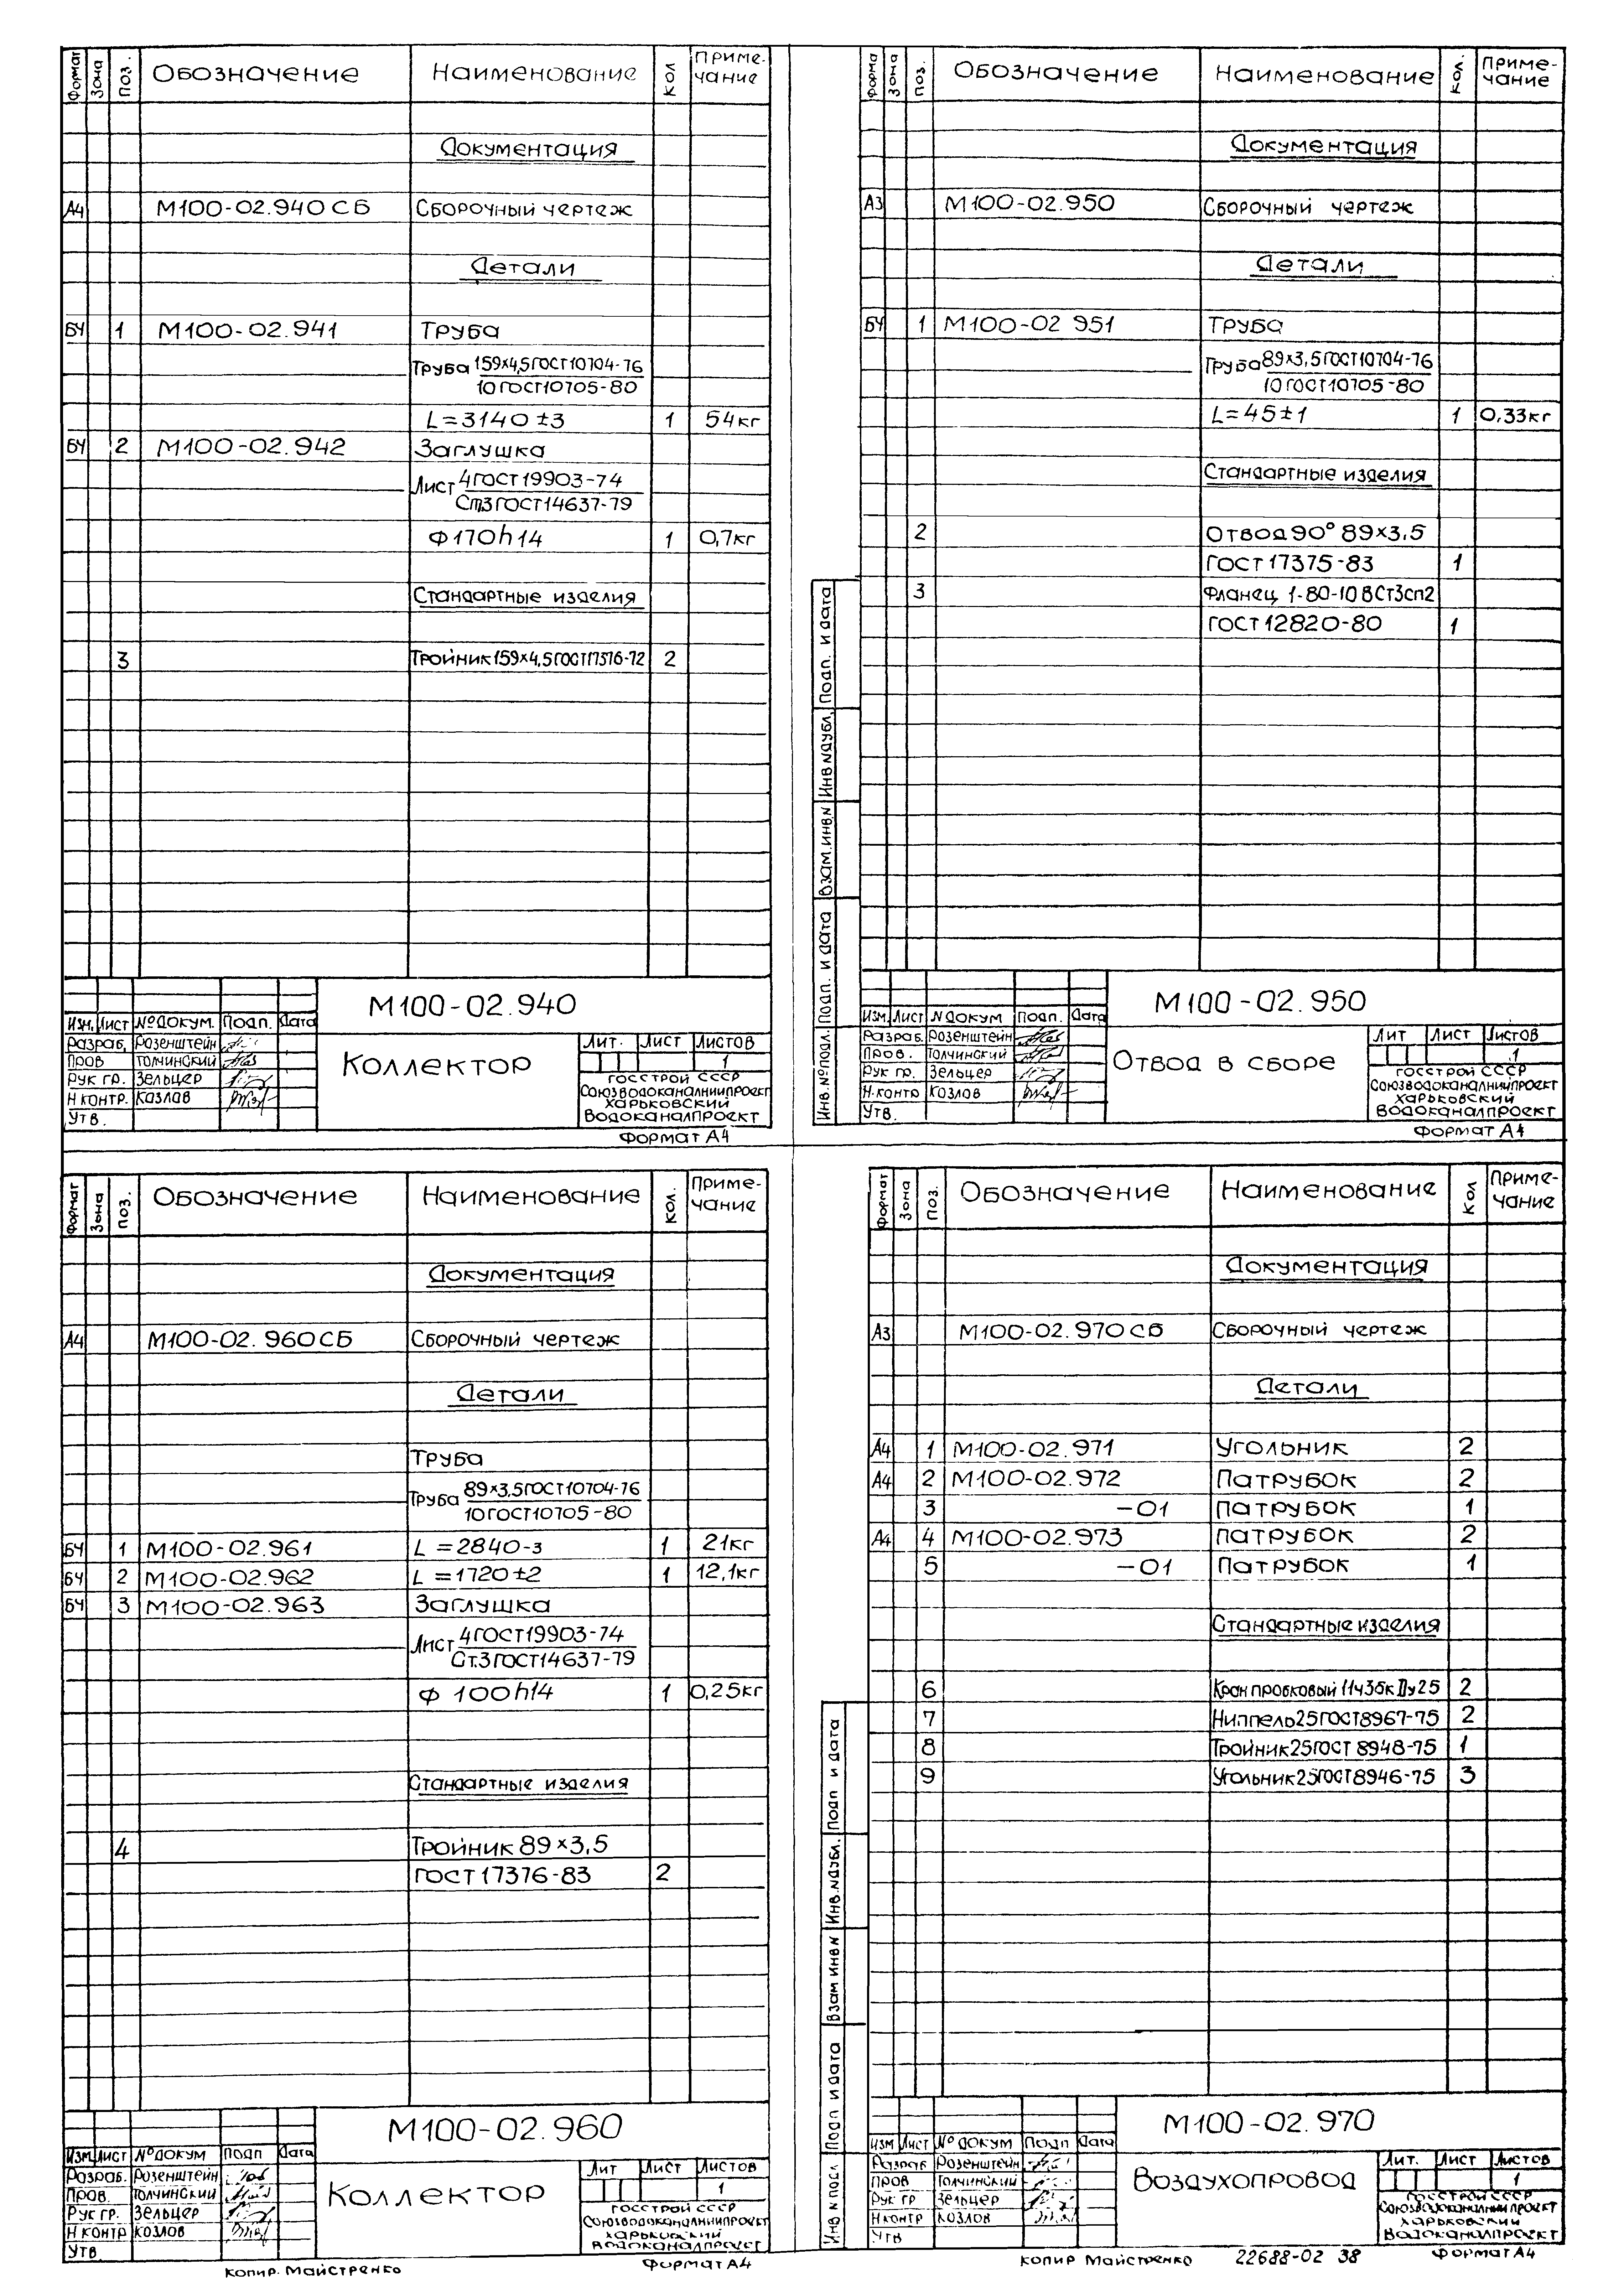 Формат Зона Поз. Обозначение Наименование Кол Приме-
чание
Документация
А4 М100-02.940 СБ Сборочный чертеж
Детали
БЧ 1 М100-02.941 Труба
Труба 159х4,5 ГОСТ 10704-76
10 ГОСТ 10705-80
L=3140±3 1 54кг
БЧ 2 М100-02.942 Заглушка
Лист 4 ГОСТ 19903-74
Ст3 ГОСТ 14637-79
Ф170h14 1 0,7кг
Стандартные изделия
3 Тройник 159х4,5 ГОСТ 17376-72 2
М100-02.940
Изм. Лист № докум. Подп. Дата
Разраб. Розенштейн
Пров Толчинский
Рук гр. Зельцер
Н контр. Казлав
Утв.
Коллектор
Лит. Лист Листов
1
Госстрой СССР
Союзводоканалниипроект
Харьковский
Водоканалпроект
Формат А4
Форма Зона Поз. Обозначение Наименование Кол. Приме-
чание
Документация
А3 М100-02.950 Сборочный чертеж
Детали
БЧ 1 М100-02 951 Труба
Труба 89х3,5 ГОСТ 10704-76
10 ГОСТ 10705-80
L=45±1 1 0,33кг
Стандартные изделия
2 Отвод 90° 89х3,5
ГОСТ 17375-83 1
3 Фланец 1-80-10 ВСт3сп2
ГОСТ 12820-80 1
Инв. № подл. Подп. и дата Взам. инв N Инв N дубл. Подп. и дата
М100-02.950
Изм. Лист N докум Подп. Дата
Разраб. Розенштейн
Пров. Толчинский
Рук гр. Зельцер
Н.контр Козлов
Утв.
Отвод в сборе
Лит Лист Листов
1
Госстрой СССР
Союзводоканалниипроект
Харьковский
Водоканалпроект
Формат А4
Формат Зона Поз. Обозначение Наименование Кол. Приме-
чание
Документация
А4 М100-02.960 СБ Сборочный чертеж
Детали
Труба
Труба 89х3,5 ГОСТ 10704-76
10 ГОСТ 10705-80
БЧ 1 М100-02.961 L=2840-3 1 21кг
БЧ 2 М100-02.962 L=1720±2 1 12,1кг
БЧ 3 М100-02.963 Заглушка
Лист 4 ГОСТ 19903-74
Ст.3 ГОСТ 14637-79
Ф 100h14 1 0,25кг
Стандартные изделия
4 Тройник 89х3,5
ГОСТ 17376-83 2
М100-02.960
Изм Лист № докум Подп Дата
Разраб. Розенштейн
Пров. Толчинский
Рук гр. Зельцер
Н контр Козлов
Утв
Коллектор
Лит Лист Листов
1
Госстрой СССР
Союзводоканалниипроект
Харьковский
Водоканалпроект
Копир. Майстренко Формат А4
Формат Зона Поз. Обозначение Наименование Кол Приме-
чание
Документация
А3 М100-02.970 СБ Сборочный чертеж
Детали
А4 1 М100-02.971 Угольник 2
А4 2 М100-02.972 Патрубок 2
3 -01 Патрубок 1
А4 4 М100-02.973 Патрубок 2
5 -01 Патрубок 1
Стандартные изделия
6 Кран пробковый 11ч3бк Ду25 2
7 Ниппель 25 ГОСТ 8967-75 2
8 Тройник 25 ГОСТ 8948-75 1
9 Угольник 25 ГОСТ 8946-75 3
Инв N подл Подп и дата Взам инв N Инв. N дубл. Подп и дата
М100-02.970
Изм Лист № докум Подп Дата
Разраб Розенштейн
Пров Толчинский
Рук гр Зельцер
Н контр Козлов
Утв
Воздухопровод
Лит. Лист Листов
1
Госстрой СССР
Союзводоканалниипроект
Харьковский
Водоканалпроект
Копир Майстренко 22688-02 38 Формат А4